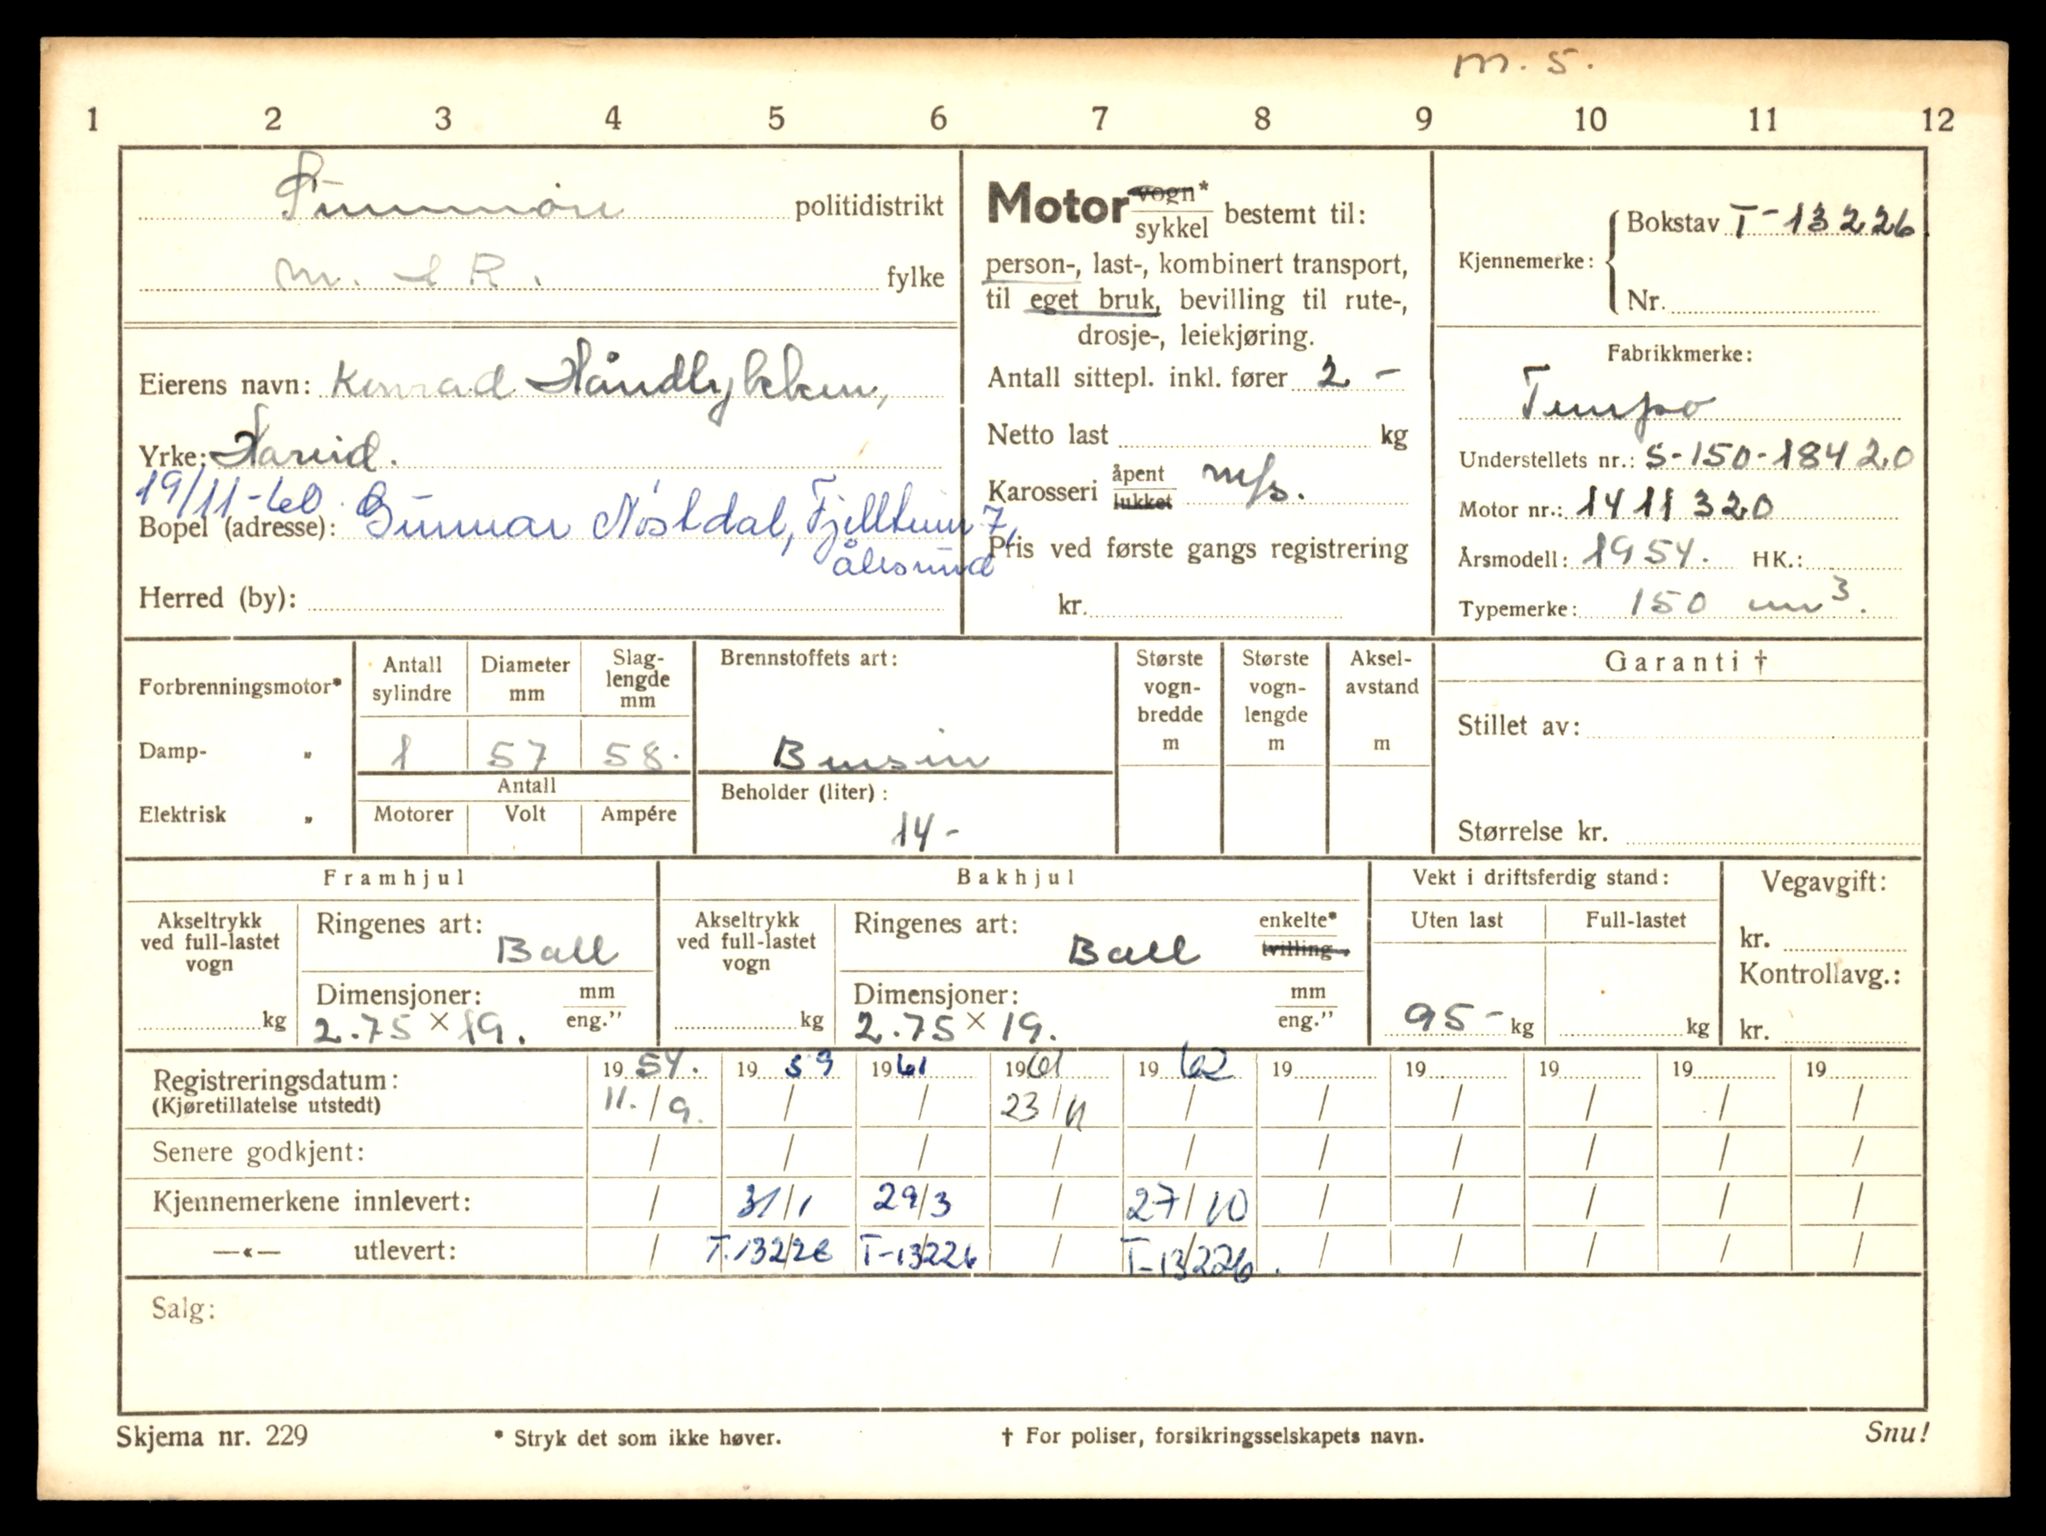 m. s.
1 2 3 4 5 6 7 8 9 10 11 12
Sunnmöre politidistrikt
M. & R. fylke
Eierens navn: Konrad Håndlykken,
Yrke: Hareid.
19/11-60. Gunnar Nöstdal, Fjelltun 7,
Bopel (adresse): Ålesund
Herred (by):
Motor vogn* / sykkel bestemt til:
person-, last-, kombinert transport,
til eget bruk, bevilling til rute-,
drosje-, leiekjøring.
Antall sittepl. inkl. fører 2 -
Netto last kg
Karosseri åpent / lukket m/s.
Pris ved første gangs registrering
kr.
Kjennemerke: Bokstav T-13226
Nr.
Fabrikkmerke:
Tempo
Understellets nr.: S-150-18420
Motor nr.: 1411320
Årsmodell: 1954. HK.:
Typemerke: 150 cm³.
Forbrenningsmotor*
Damp- „
Elektrisk „
Antall sylindre Diameter mm Slaglengde mm
1 57 58.
Antall
Motorer Volt Ampére
Brennstoffets art:
Bensin
Beholder (liter):
14-
Største vognbredde m
Største vognlengde m
Akselavstand m
Garanti †
Stillet av:
Størrelse kr.
Framhjul
Akseltrykk ved full-lastet vogn kg
Ringenes art: Ball
Dimensjoner: mm / eng."
2.75 × 19.
Bakhjul
Akseltrykk ved full-lastet vogn kg
Ringenes art: Ball enkelte* / tvilling-
Dimensjoner: mm / eng."
2.75 × 19.
Vekt i driftsferdig stand:
Uten last Full-lastet
95- kg kg
Vegavgift:
kr.
Kontrollavg.:
kr.
Registreringsdatum: 1954. 1959 1961 1961 1962 19 19 19 19 19
(Kjøretillatelse utstedt) 11./9. / / 23/11 / / / / / /
Senere godkjent: / / / / / / / / / /
Kjennemerkene innlevert: / 31/1 29/3 / 27/10 / / / / /
—«— utlevert: / T.13226 T-13226 / T-13226. / / / / /
Salg:
Skjema nr. 229 * Stryk det som ikke høver. † For poliser, forsikringsselskapets navn. Snu!